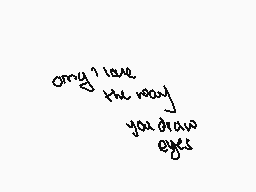 omg i love
the way
you draw
eyes